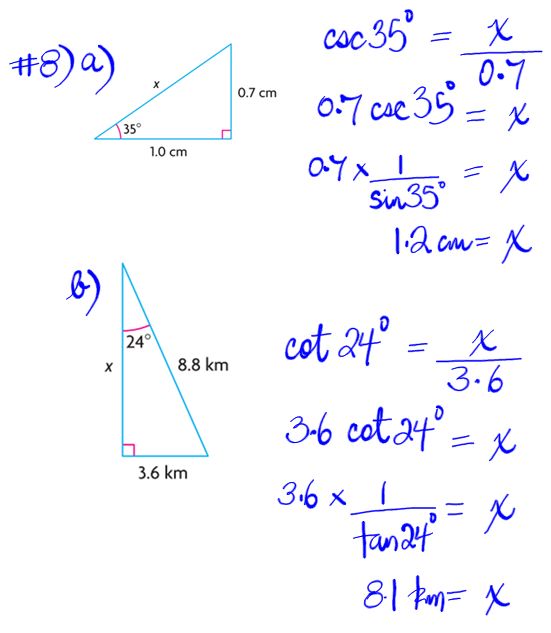 #8) a)
x
0.7 cm
35°
1.0 cm
csc 35° = x / 0.7
0.7 csc 35° = x
0.7 × 1 / sin 35° = x
1.2 cm = x
b)
24°
x
8.8 km
3.6 km
cot 24° = x / 3.6
3.6 cot 24° = x
3.6 × 1 / tan 24° = x
8.1 km = x